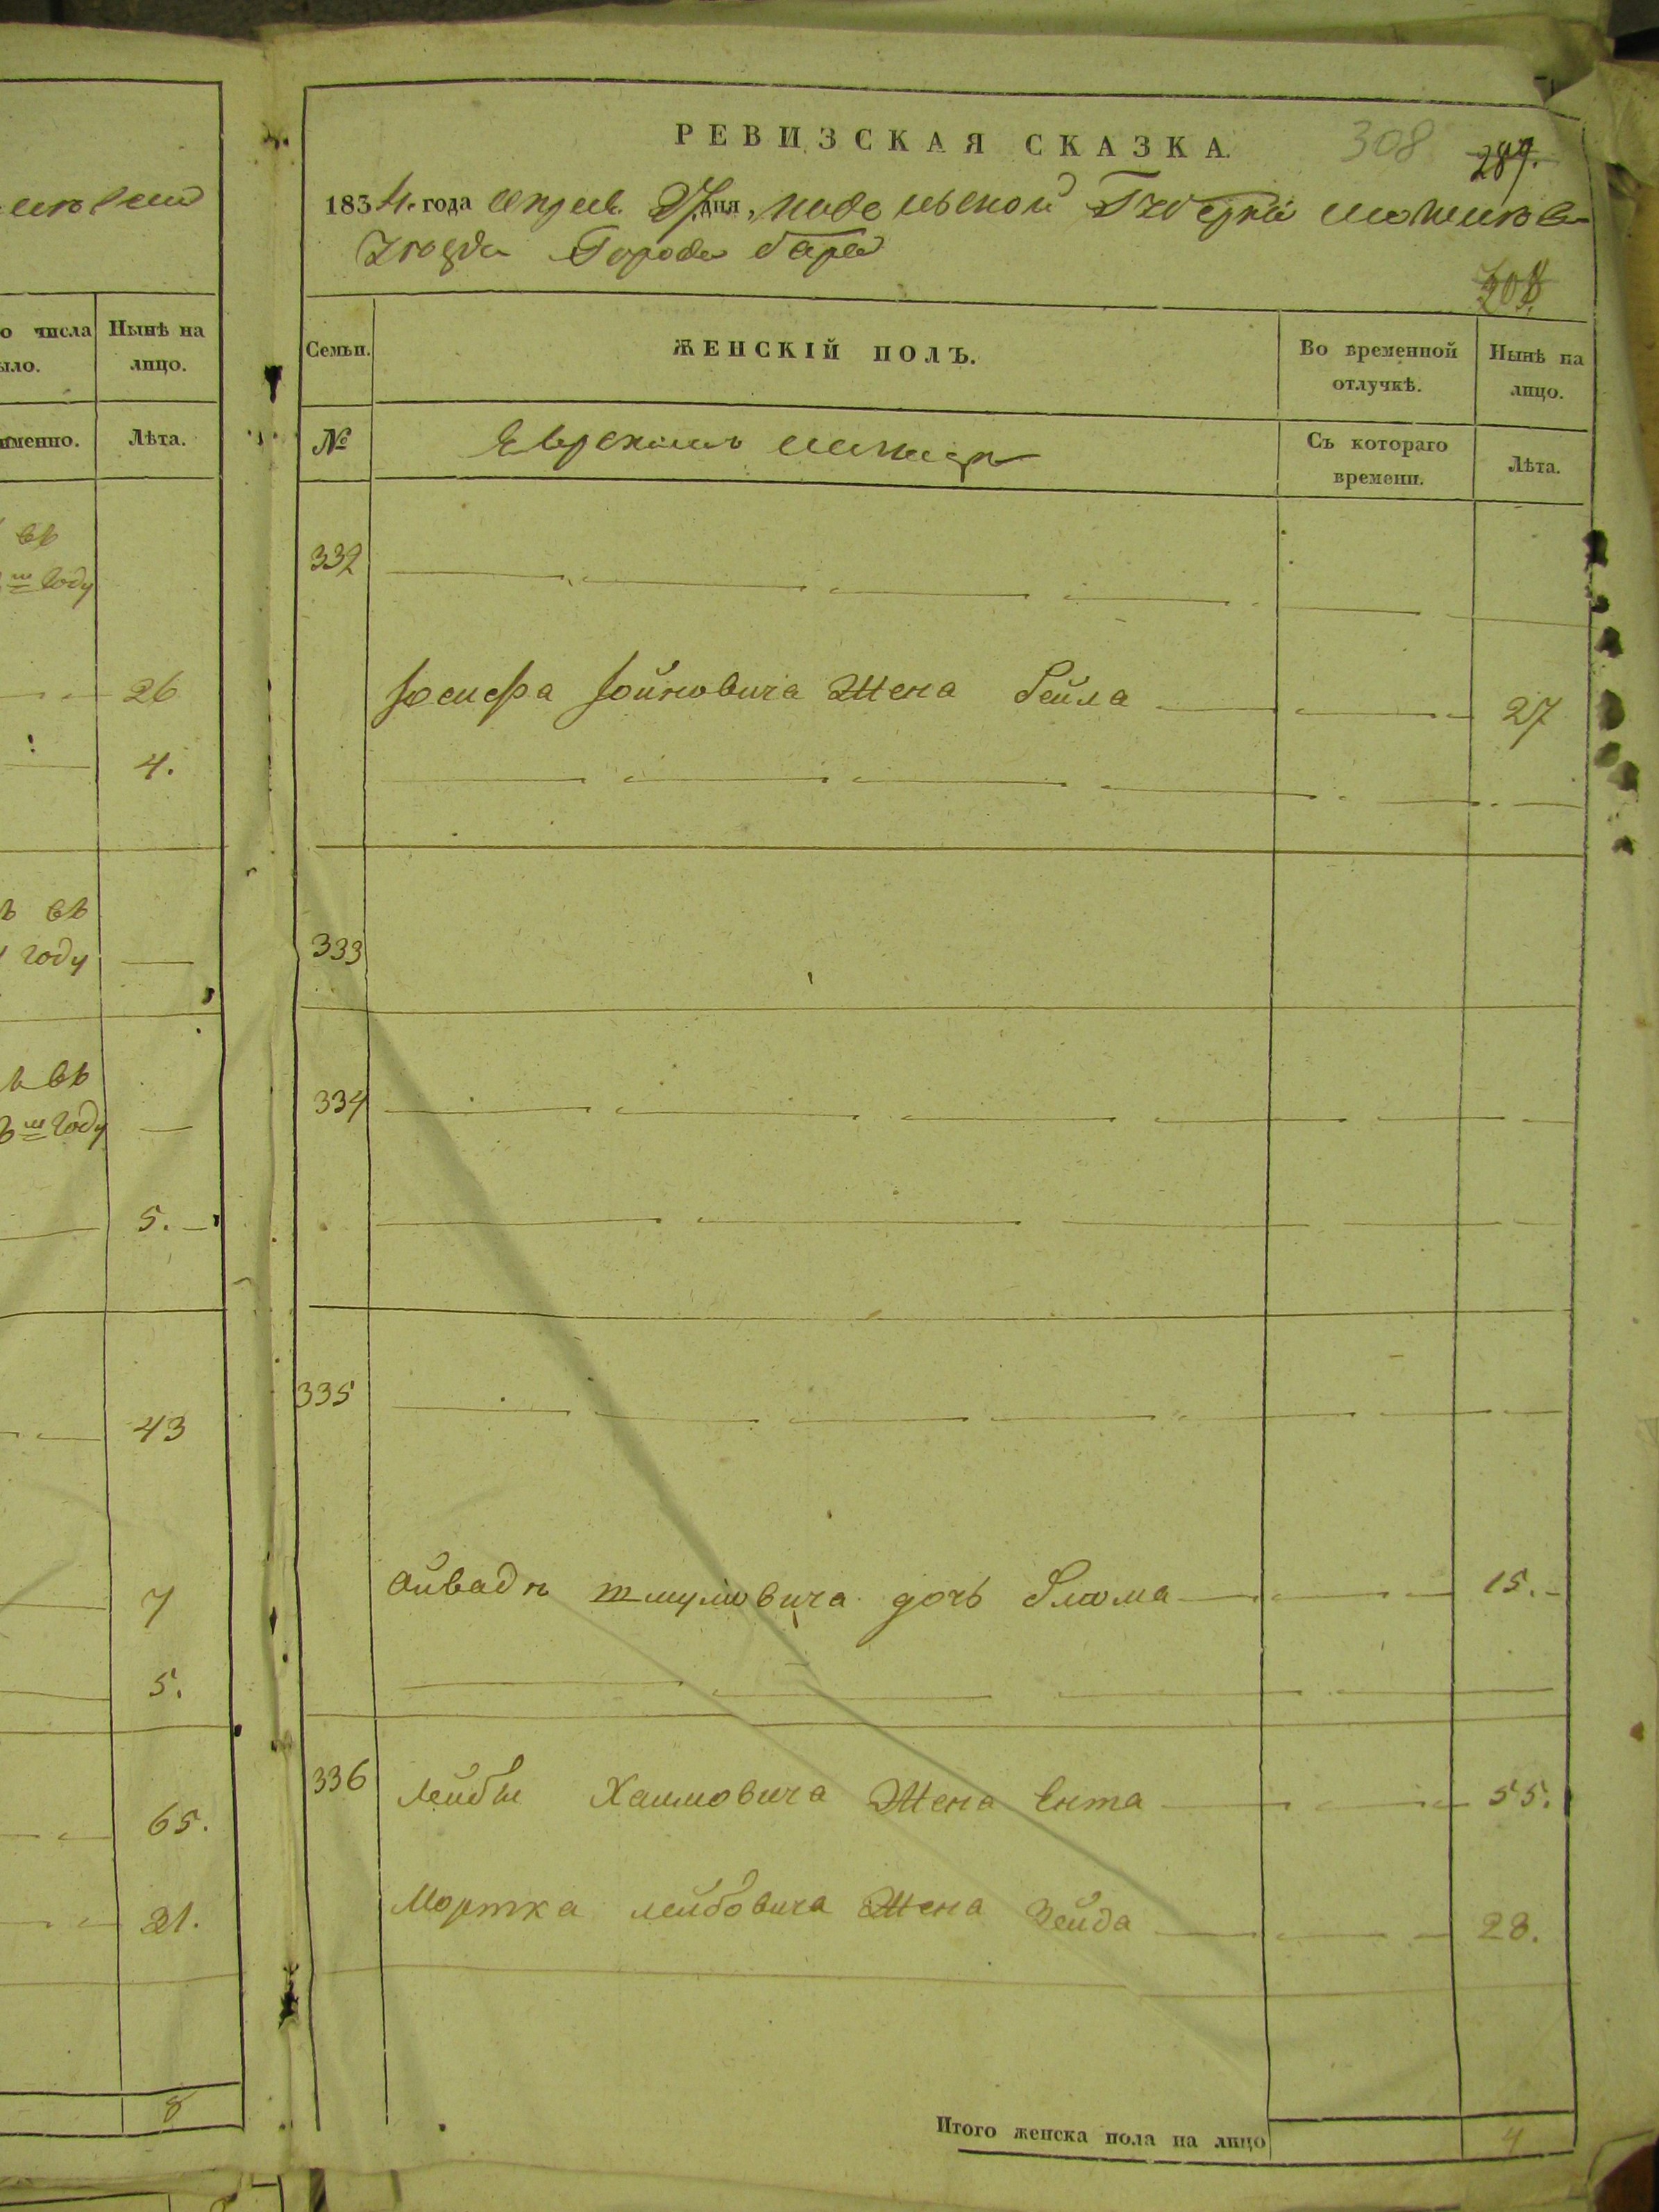 о числа
Нынѣ на
ыло.
лицо.
именно.
Лѣта.
въ
году
26
4.
ъ въ
году
ъ въ
году
5.
43
7
5.
65.
31.
8
РЕВИЗСКАЯ СКАЗКА.
308
287.
1834. года апрѣл. дня, подольской Губерніи
уѣзда Города бара
308
Семьи.
ЖЕНСКІЙ ПОЛЪ.
Во временной отлучкѣ.
Нынѣ на лицо.
№
Съ котораго времени.
Лѣта.
332
Іосифа Іойновича Жена Бейла 27
333
334
335
Айвадъ шмулювича дочь 15.
336 Лейбы Хаимовича Жена Ента 55.
Мортка лейбовича Жена Зейда 28.
Итого женска пола на лицо 4